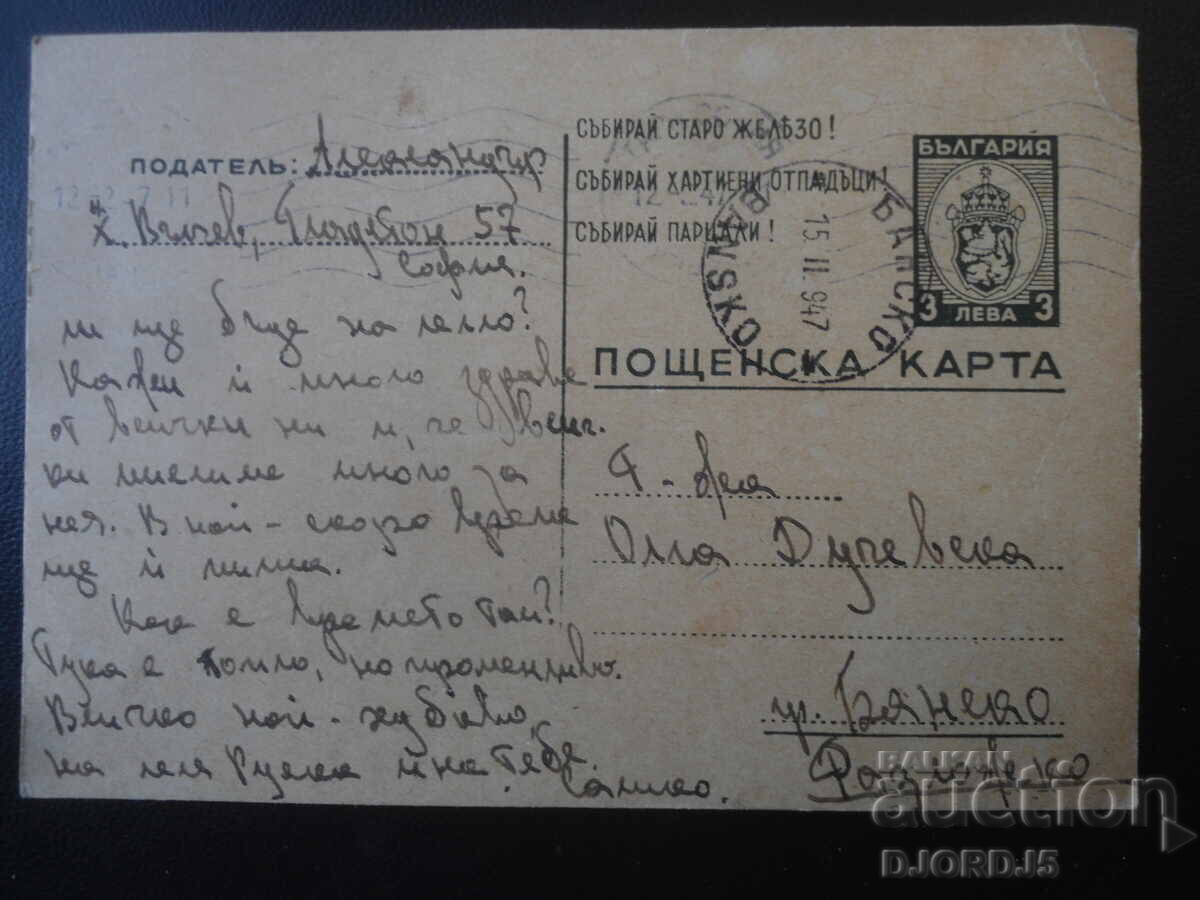 ПОДАТЕЛЬ: Александър
х. Вълчев, Гладстон 57
София.
ни ще бъде на лельо?
Кажи ѝ много здраве
от всички ни и, че всич-
ки мислиме много за
нея. В най-скоро време
ще ѝ пиша.
Как е времето там?
Тука е топло, но променливо.
Всичко най-хубаво
на леля Руска и на тебе.
Сашко.
СЪБИРАЙ СТАРО ЖЕЛѢЗО!
СЪБИРАЙ ХАРТИЕНИ ОТПАДЪЦИ!
СЪБИРАЙ ПАРЦАЛИ!
БЪЛГАРИЯ
3 ЛЕВА 3
БАНСКО
BANSKO
15. II. 947
ПОЩЕНСКА КАРТА
Г-жа
Олга Дучевска
гр. Банско
Разложко
BALKAN
auction
DJORDJ5